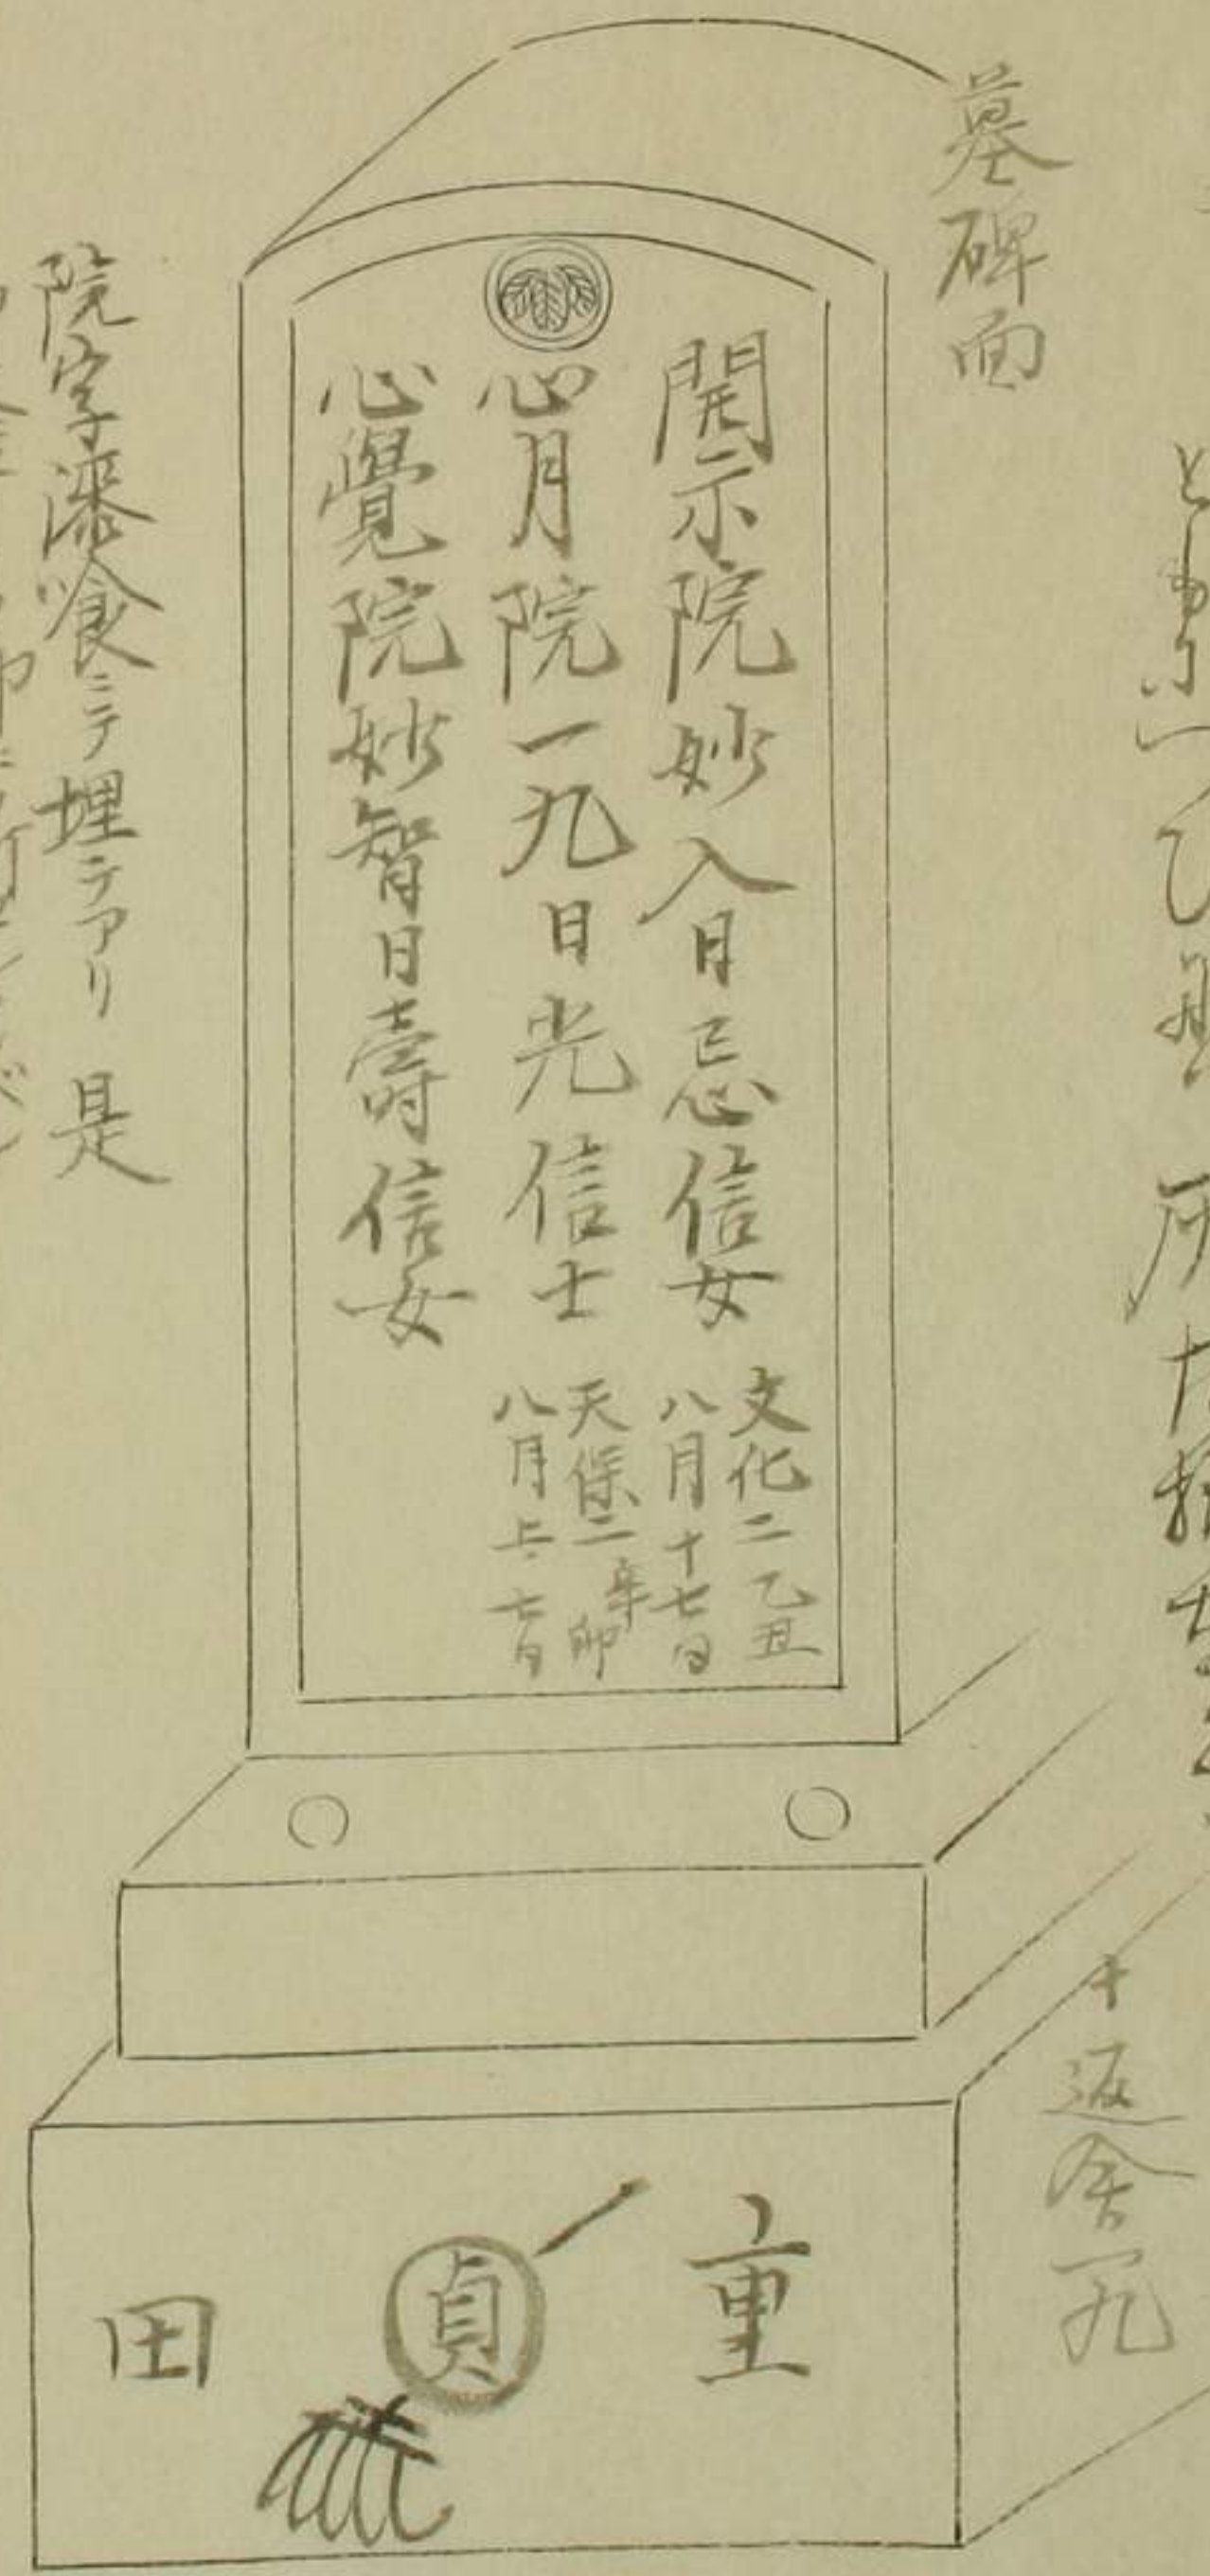 墓碑面
開示院妙入日忌信女
文化二乙丑
八月十七日
心月院一九日光信士
天保二辛卯
八月上七日
心覺院妙智日壽信女
十返舎一九
重
貞
田
院字漆喰ニテ埋テアリ 是